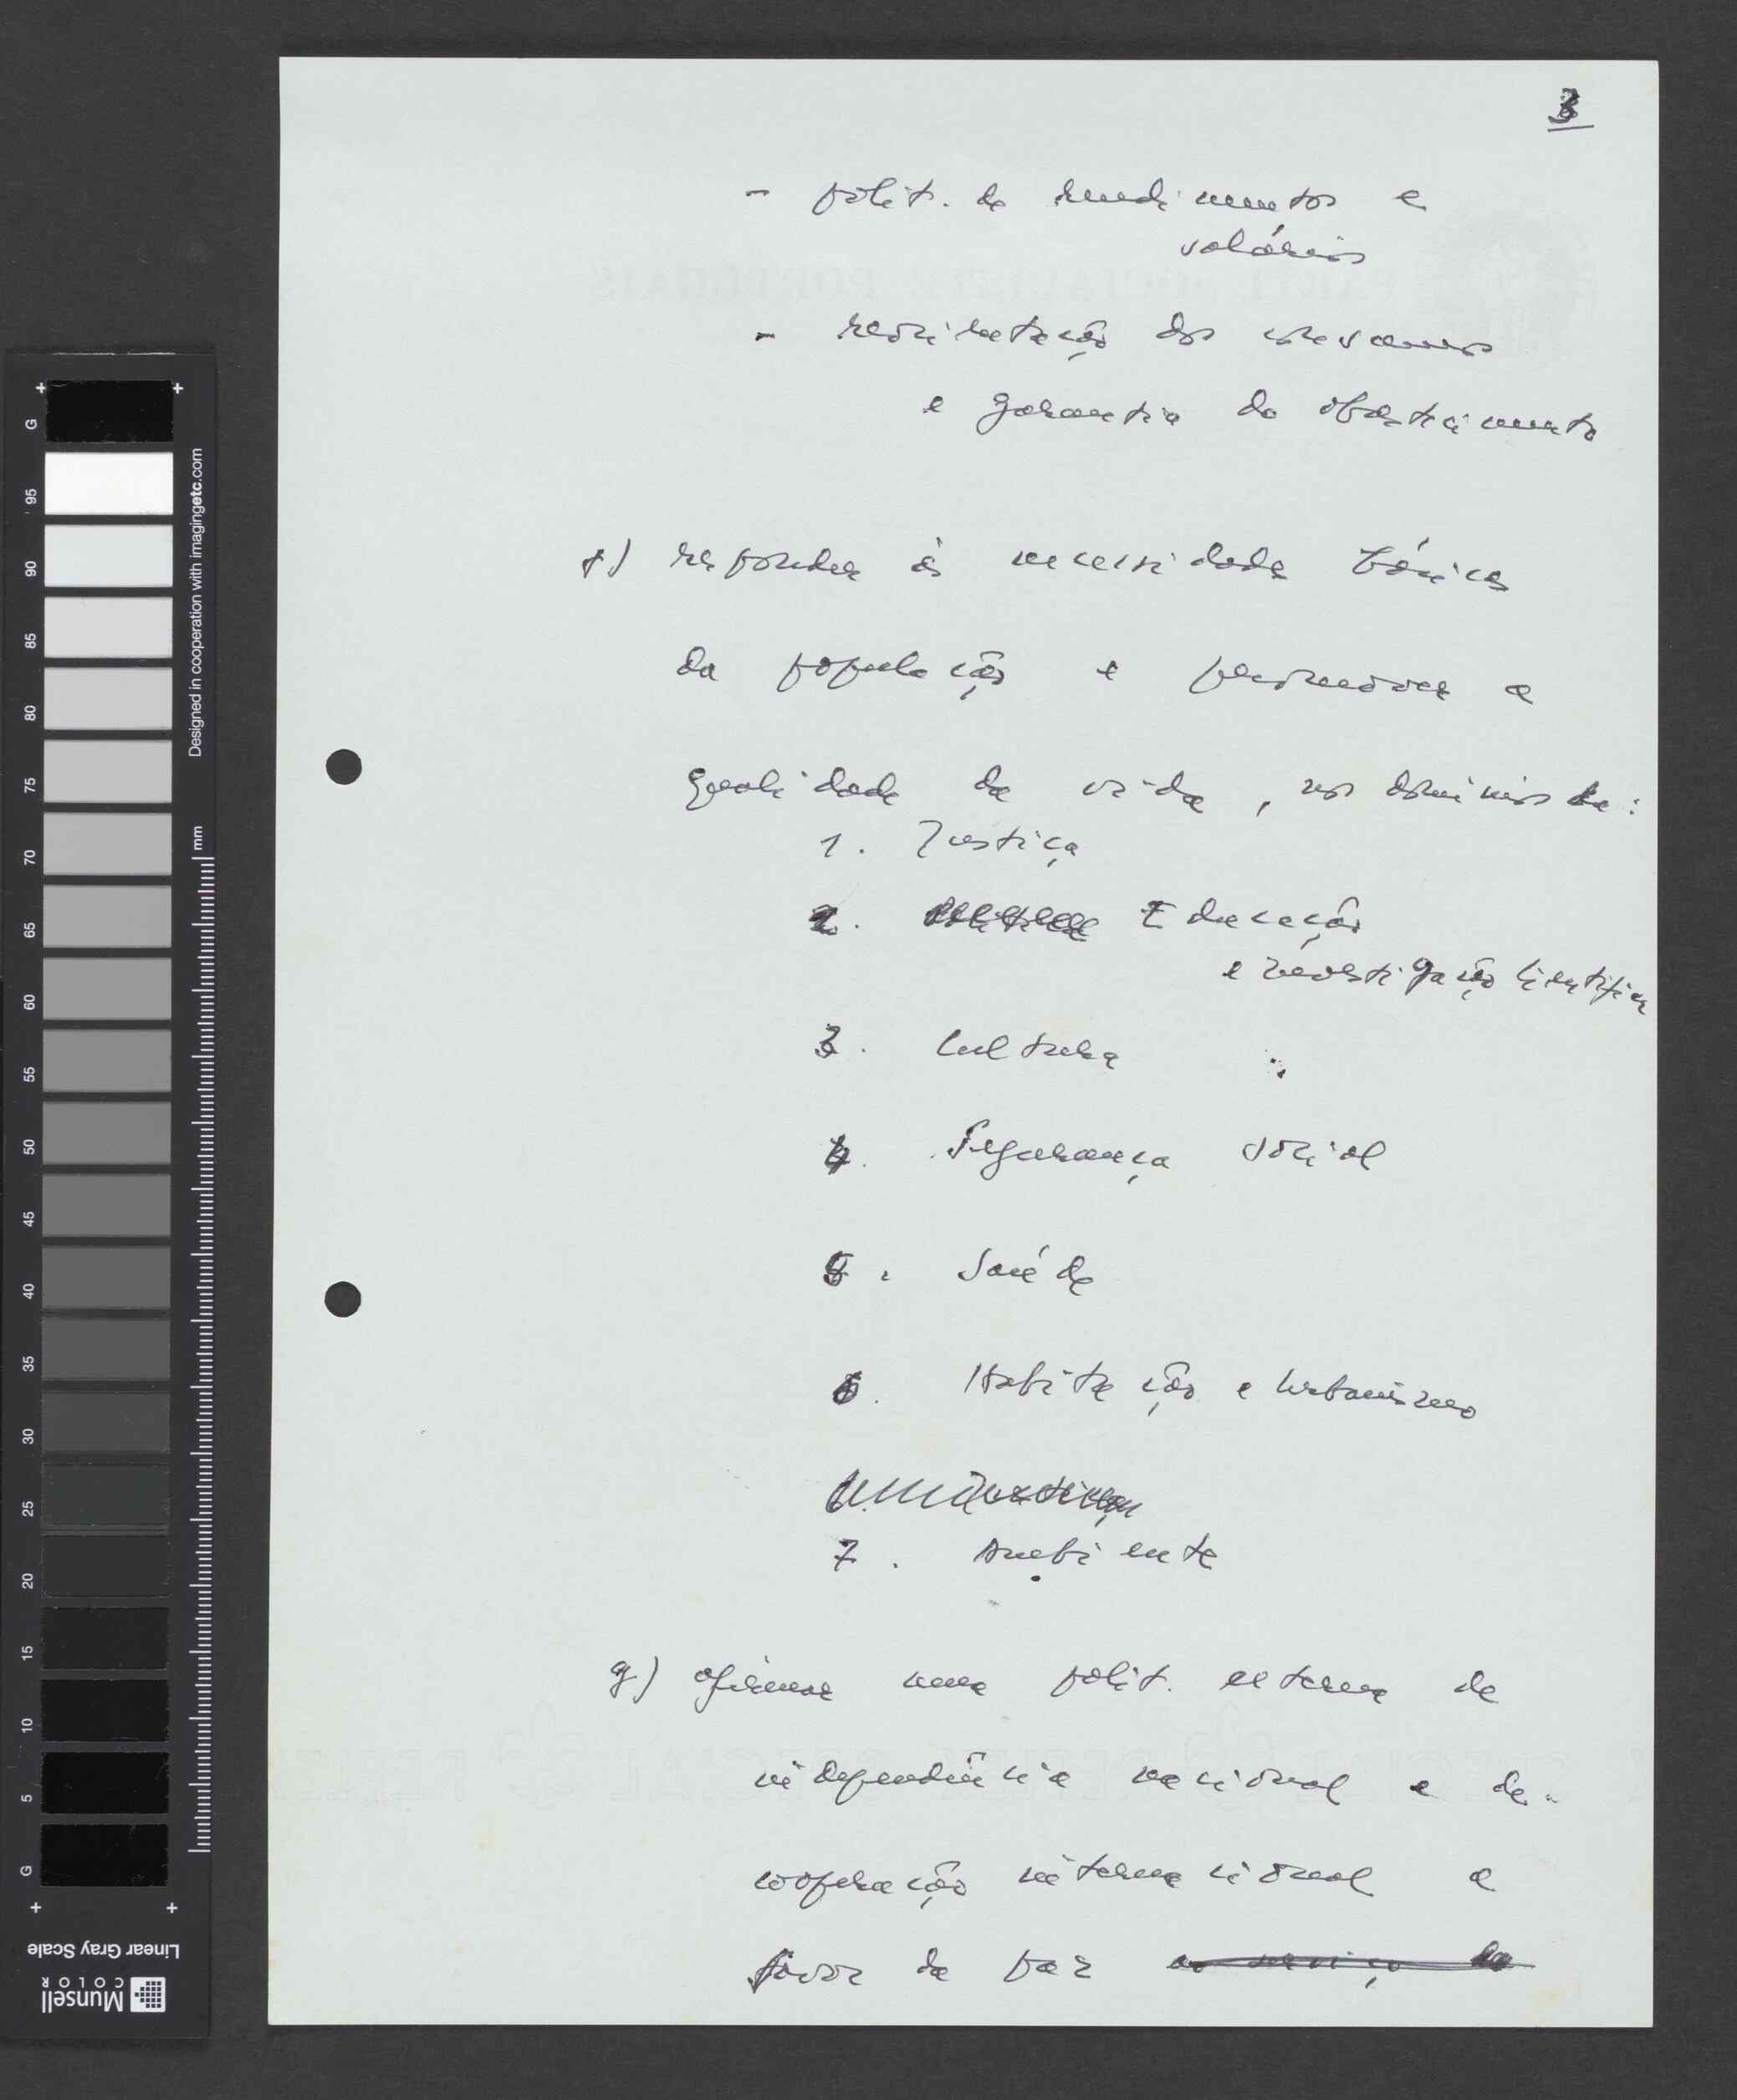 3
- polít. de rendimentos e
salários
- reorientação dos consumos
e garantia do abastecimento
f) responder às necessidades básicas
da população e promover a
qualidade da vida, nos domínios de:
1. Justiça
2. Educação
e Investigação Científica
3. Cultura
4. Segurança social
5. Saúde
6. Habitação e Urbanismo
7. Ambiente
g) afirmar uma polít. externa de
independência nacional e de
cooperação internacional a
favor da paz ao serviço da
G
95
90
85
80
75
70
65
60
55
50
45
40
35
30
25
20
15
10
5
G
Designed in cooperation with imagingetc.com
mm
Linear Gray Scale
Munsell
COLOR
PARTI SOCIALISTE PORTUGAIS